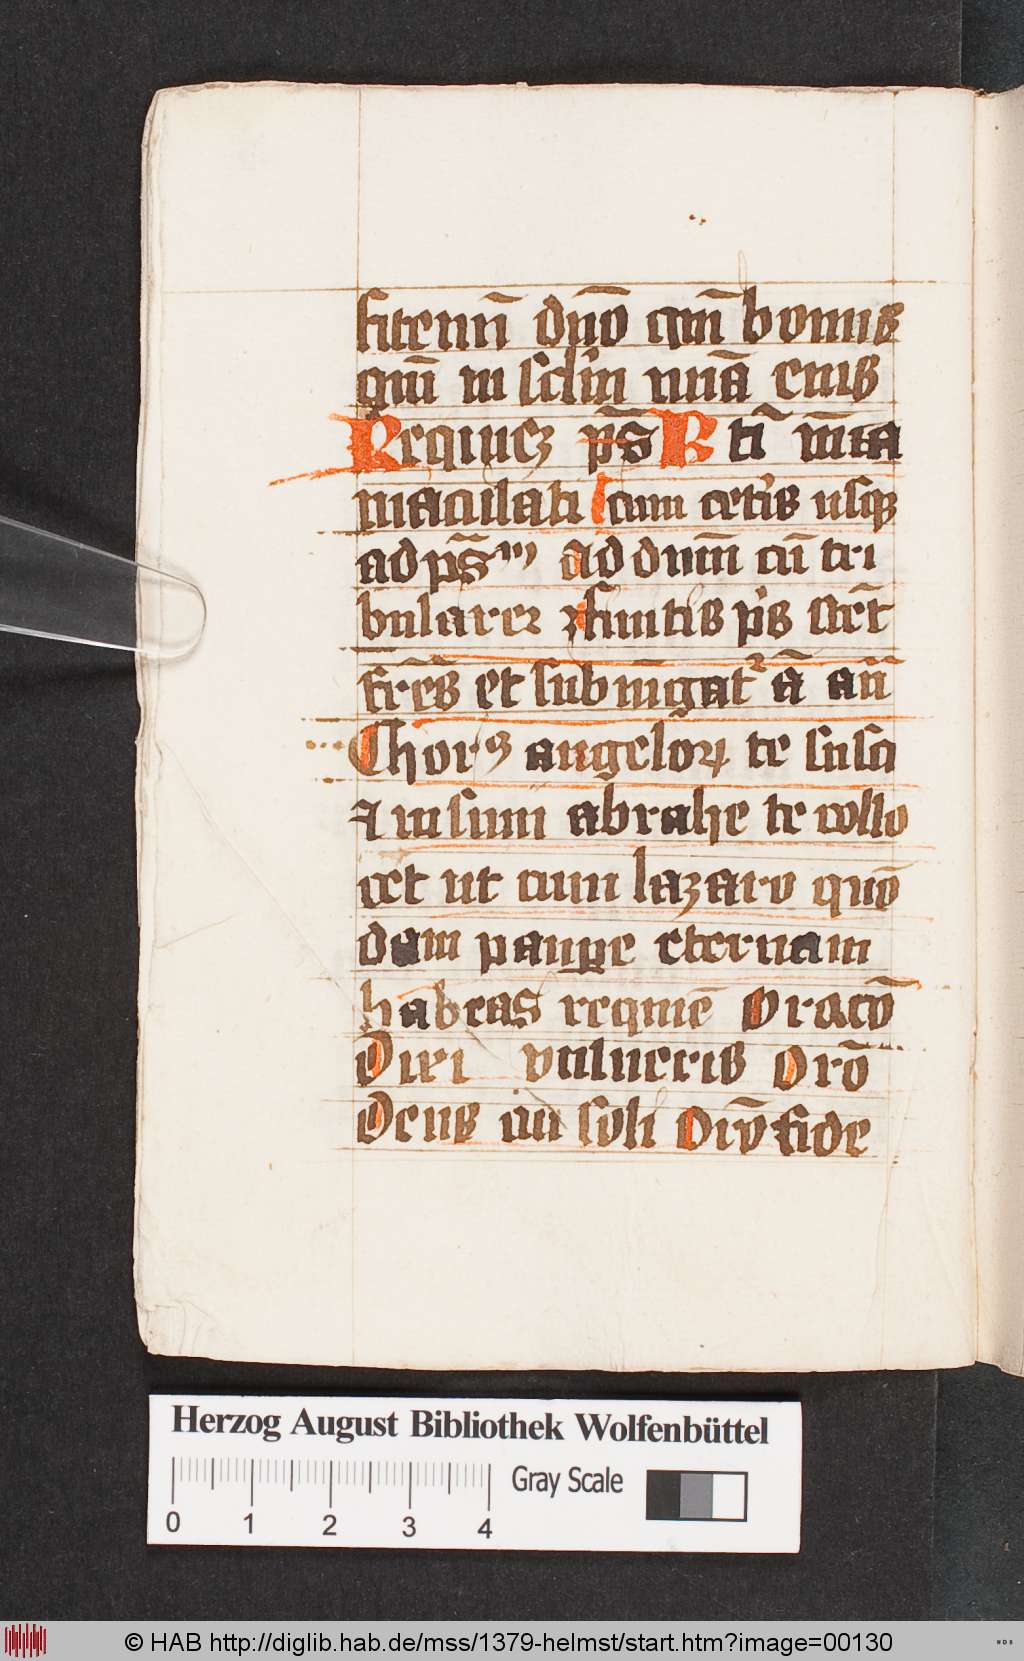 fitemī dn̄o qm̄ bonus
qm̄ in sclm mīa eius
Requiez ps̄ R ti m̄ia
maculati cum cetis usqꝫ
ad ps̄m ad dnm̄ cū tri
bularer ⁊ finitis p̄s stet
fr̄es et subīngat᷑ ā añ
Chorꝰ angeloꝝ te susci
⁊ in sinu abrahe te collo
cet ut cum lazaro quō
dam paupe eternam
habeas requiē Oracō
Diri vulneris Orō
Deus cui soli Oīm fide
Herzog August Bibliothek Wolfenbüttel
Gray Scale
0 1 2 3 4
© HAB http://diglib.hab.de/mss/1379-helmst/start.htm?image=00130